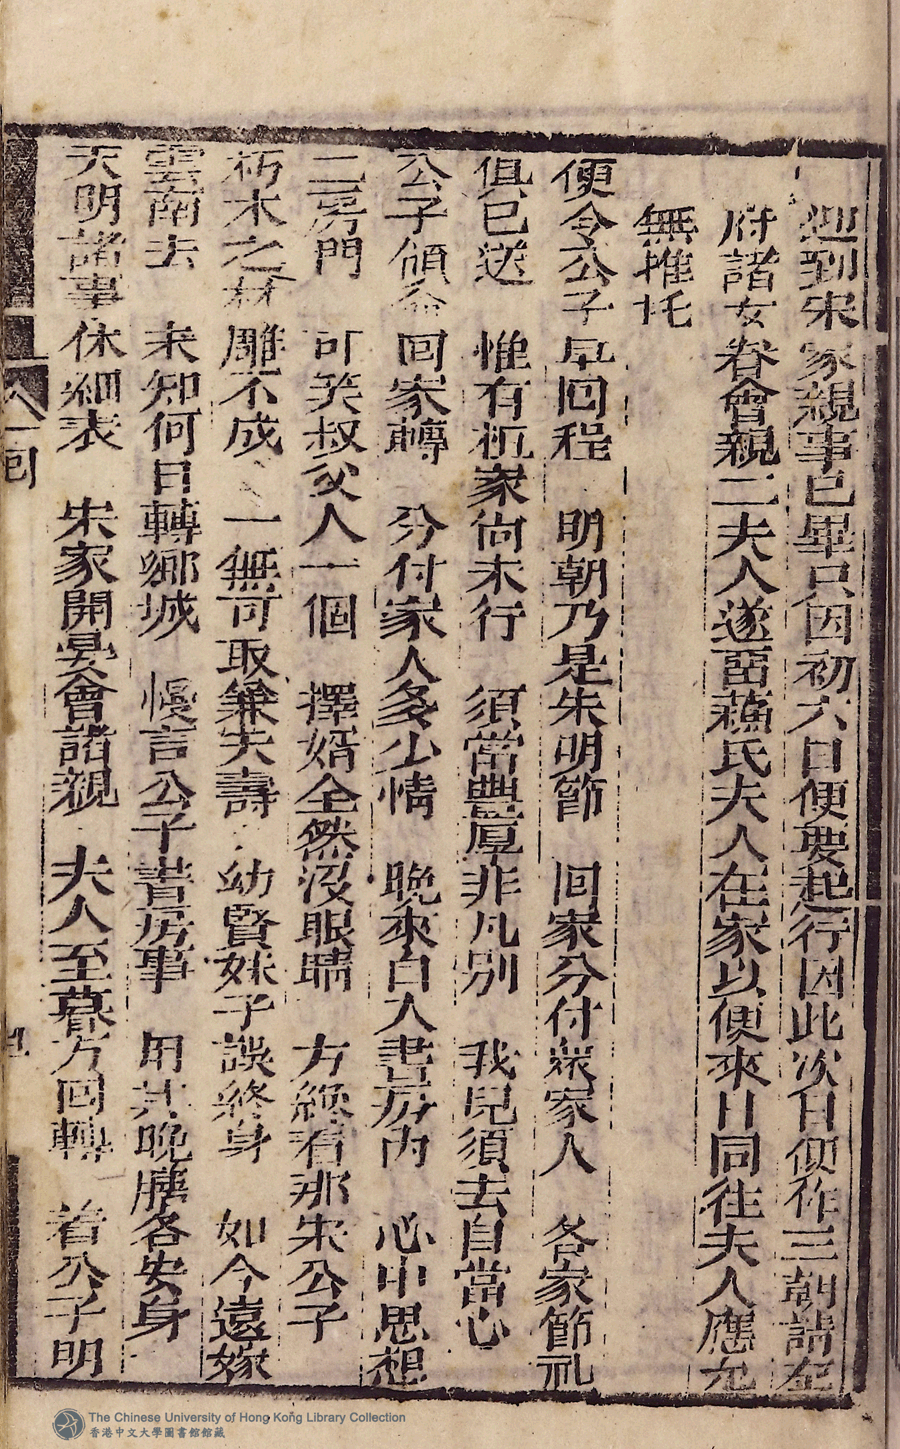 迎到宋家親事已畢只因初六日便要起行因此次日便作三朝請至
府諸女眷會親二夫人遂畱蘓氏夫人在家以便來日同往夫人應允
無推托
便令公子早回程 明朝乃是朱明節 回家分付眾家人 各家節礼
俱已送 惟有杭家尙未行 須當豐厚非凡別 我兒須去自當心
公子傾命回家轉 分付家人多少情 晩來自入書房內 心中思想
二房門 可笑叔父人一個 擇婿全然沒眼睛 方纔看那宋公子
朽木之材雕不成 一無可取兼夭壽 幼賢妹子誤終身 如今遠嫁
雲南去 未知何日轉鄉城 慢言公子書房事 用其晚膳各安身
天明諸事休細表 宋家開宴會諸親 夫人至暮方回轉 着公子明
回
The Chinese University of Hong Kong Library Collection
香港中文大學圖書館館藏